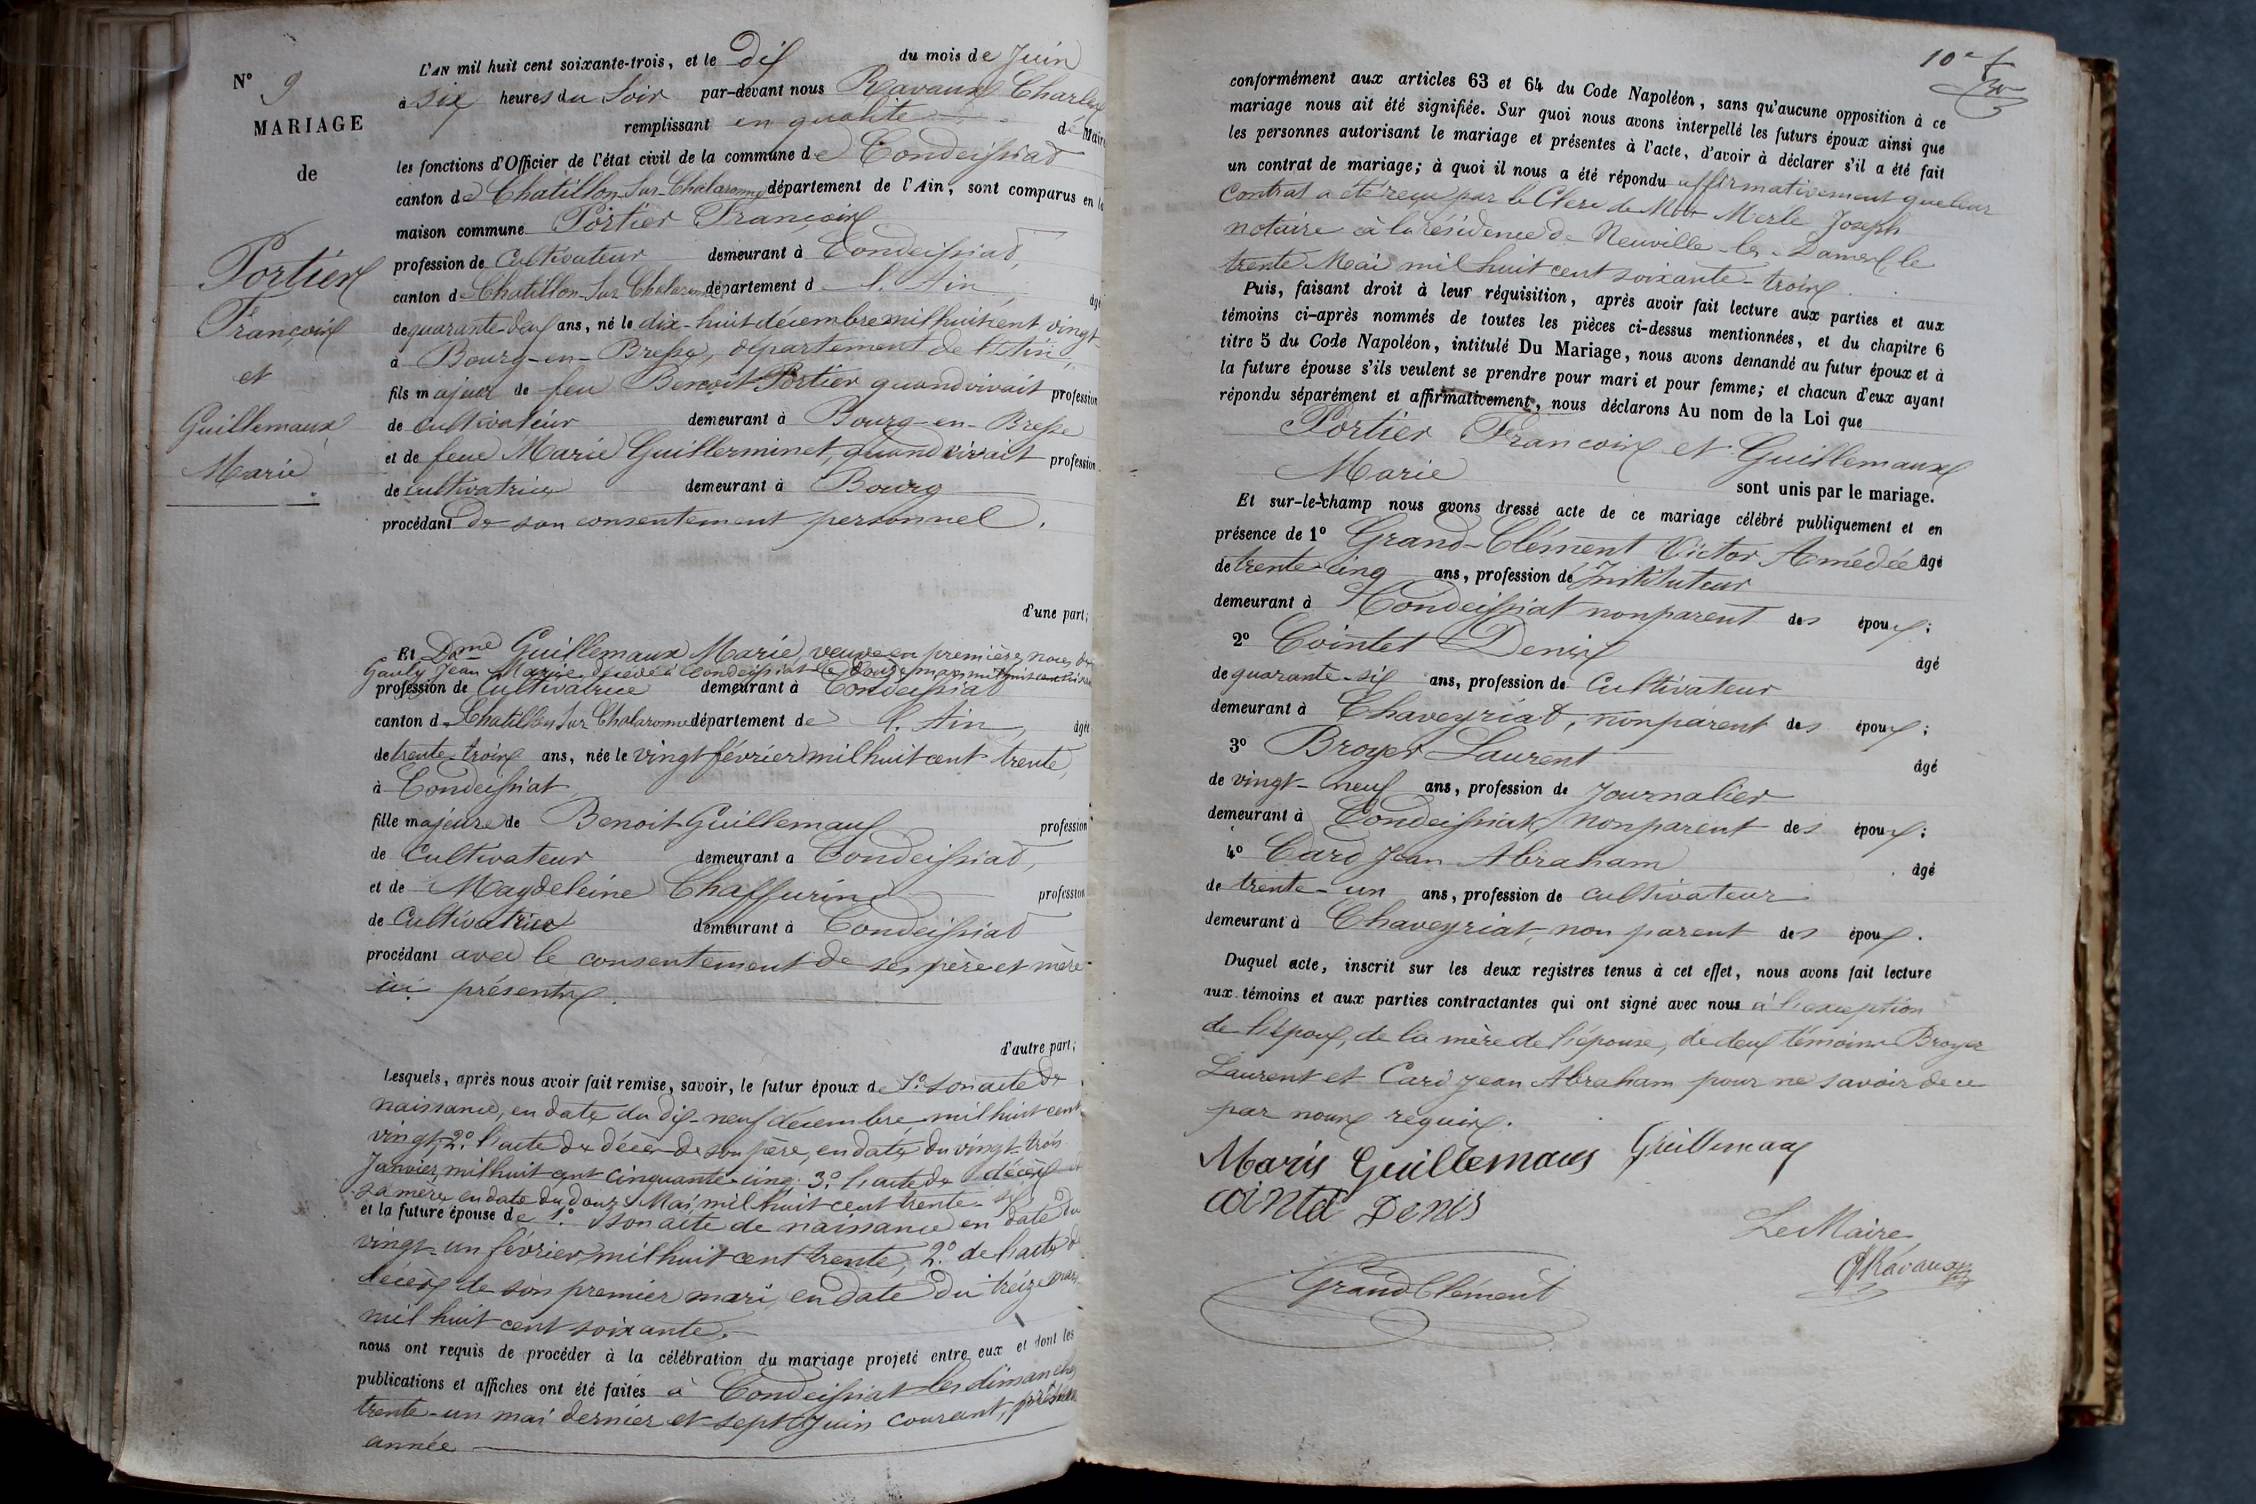 N° 9
MARIAGE
de
Portier
François
et
Guillemaux
Marie
L'AN mil huit cent soixante-trois, et le dix du mois de Juin
à Six heures du Soir par-devant nous Ravaux Charles
remplissant en qualité de Maire
les fonctions d'Officier de l'état civil de la commune de Condeissiat
canton de Chatillon-sur-Chalaronne département de l'Ain, sont comparus en la
maison commune Portier François
profession de Cultivateur demeurant à Condeissiat,
canton de Chatillon-sur-Chalaronne département d l'Ain, âgé
de quarante-deux ans, né le dix-huit décembre mil huit cent vingt
à Bourg-en-Bresse, département de l'Ain,
fils majeur de feu Benoit Portier quand vivait profession
de cultivateur demeurant à Bourg-en-Bresse
et de feue Marie Guillerminet, quand vivait profession
de cultivatrice demeurant à Bourg
procédant de son consentement personnel.
d'une part;
Et Dame Guillemaux Marie, veuve en premières noces de
Gauly Jean Marie décédé à Condeissiat le douze mars mil huit cent
profession de Cultivatrice demeurant à Condeissiat
canton d Chatillon sur Chalaronne département de l'Ain, âgée
de trente-trois ans, née le vingt février mil huit cent trente,
à Condeissiat
fille majeure de Benoit Guillemaux profession
de Cultivateur demeurant à Condeissiat,
et de Magdeleine Chaffurin profession
de Cultivatrice demeurant à Condeissiat
procédant avec le consentement de ses père et mère
ici présents.
d'autre part;
Lesquels, après nous avoir fait remise, savoir, le futur époux de 1° son acte de
naissance, en date du dix-neuf décembre mil huit cent
vingt, 2° l'acte de décès de son père, en date du vingt-trois
Janvier, mil huit cent cinquante-cinq 3° l'acte de décès de
sa mère en date du douze Mai mil huit cent trente-six
et la future épouse de 1° son acte de naissance en date du
vingt-un février mil huit cent trente, 2° de l'acte de
décès de son premier mari, en date du treize mars
mil huit cent soixante.
nous ont requis de procéder à la célébration du mariage projeté entre eux et dont les
publications et affiches ont été faites à Condeissiat les dimanches
trente-un mai dernier et sept Juin courant, présente
année
10e f
conformément aux articles 63 et 64 du Code Napoléon, sans qu'aucune opposition à ce
mariage nous ait été signifiée. Sur quoi nous avons interpellé les futurs époux ainsi que
les personnes autorisant le mariage et présentes à l'acte, d'avoir à déclarer s'il a été fait
un contrat de mariage; à quoi il nous a été répondu affirmativement que leur
Contrat a été reçu par le Clerc de Me Merle Joseph
notaire à la résidence de Neuville-les-Dames, le
trente Mai mil huit cent soixante-trois.
Puis, faisant droit à leur réquisition, après avoir fait lecture aux parties et aux
témoins ci-après nommés de toutes les pièces ci-dessus mentionnées, et du chapitre 6
titre 5 du Code Napoléon, intitulé Du Mariage, nous avons demandé au futur époux et à
la future épouse s'ils veulent se prendre pour mari et pour femme; et chacun d'eux ayant
répondu séparément et affirmativement, nous déclarons Au nom de la Loi que
Portier François et Guillemaux
Marie sont unis par le mariage.
Et sur-le-champ nous avons dressé acte de ce mariage célébré publiquement et en
présence de 1° Grand-Clément Victor Amédée âgé
de trente-cinq ans, profession de Instituteur
demeurant à Condeissiat non parent des époux;
2° Cointet Denis âgé
de quarante-six ans, profession de Cultivateur
demeurant à Chaveyriat, non parent des époux;
3° Broyer Laurent âgé
de vingt-neuf ans, profession de Journalier
demeurant à Condeissiat, non parent des époux;
4° Card Jean Abraham âgé
de trente-un ans, profession de cultivateur
demeurant à Chaveyriat, non parent des époux.
Duquel acte, inscrit sur les deux registres tenus à cet effet, nous avons fait lecture
aux témoins et aux parties contractantes qui ont signé avec nous à l'exception
de l'époux, de la mère de l'épouse, de deux témoins Broyer
Laurent et Card Jean Abraham pour ne savoir de ce
par nous requis.
Marie Guillemaus Guillemaux
Cointet Denis
Le Maire
Ravaux
GrandClément